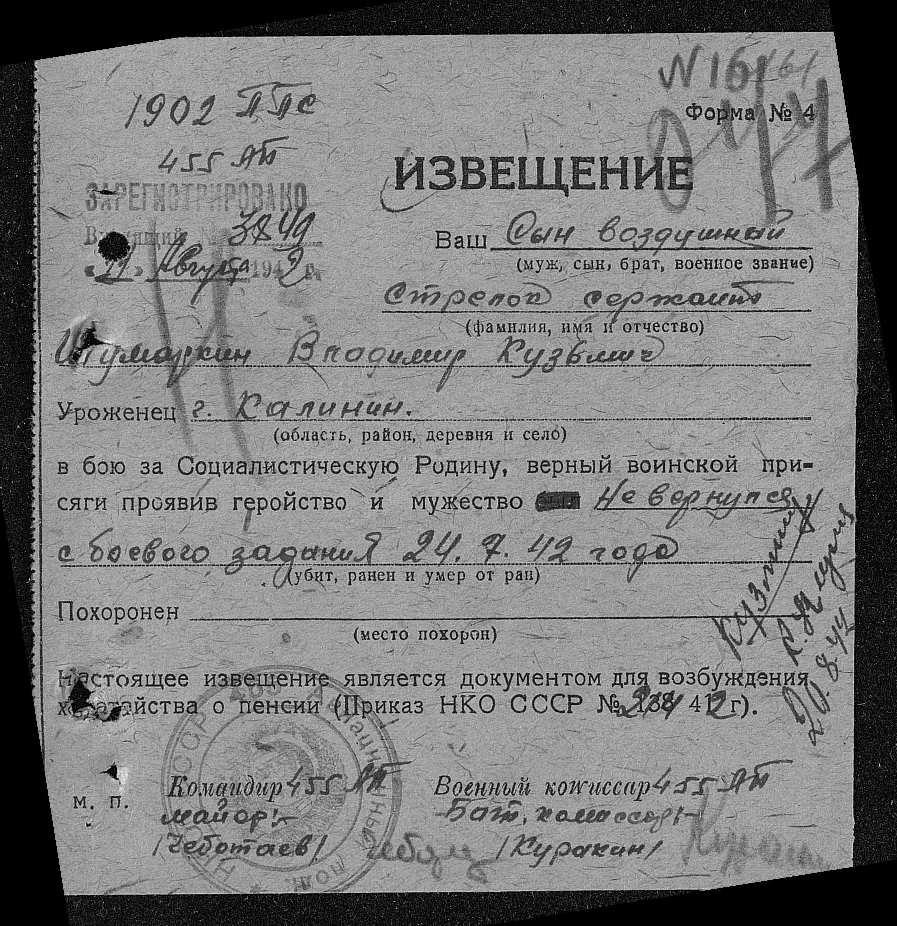 N 161
1902 ППС
Форма № 4
455 АП
ИЗВЕЩЕНИЕ
ЗАРЕГИСТРИРОВАНО
Входящий № 3849
Августа 1942 г.
Ваш Сын воздушный
(муж, сын, брат, военное звание)
Стрелок сержант
(фамилия, имя и отчество)
Штумаркин Владимир Кузьмич
Уроженец г. Калинин.
(область, район, деревня и село)
в бою за Социалистическую Родину, верный воинской при-
сяги проявив геройство и мужество Не вернулся
с боевого задания 24.7.42 года
(убит, ранен и умер от ран)
Похоронен
(место похорон)
20.8.42
Настоящее извещение является документом для возбуждения
ходатайства о пенсии (Приказ НКО СССР № 214 42 г).
м. п.
Командир 455 АП
Военный комиссар 455 АП
майор:-
Бат. комиссар:-
/Чеботаев/
/Куракин/